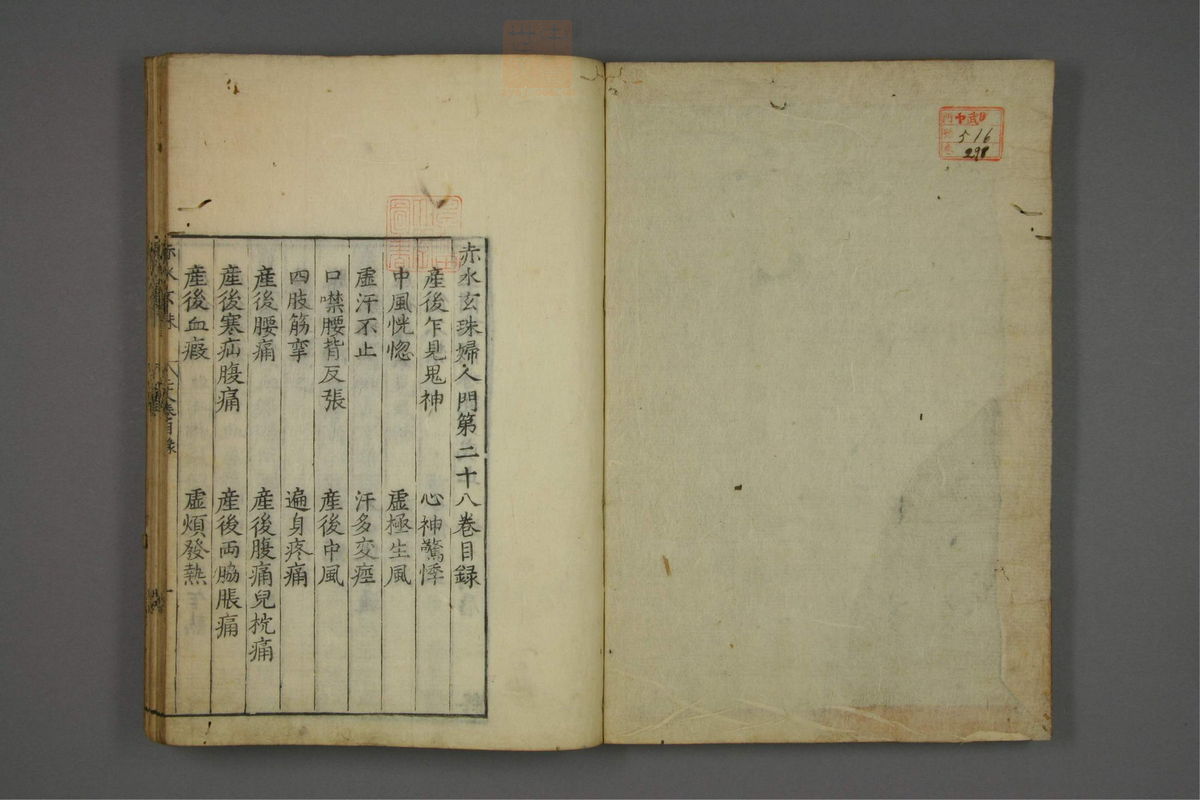 赤水玄珠婦人門第二十八卷目録
産後乍見鬼神 心神驚悸
中風恍惚 虛極生風
虛汗不止 汗多变痙
口噤腰背反張 産後中風
四肢筋攣 遍身疼痛
産後腰痛 産後腹痛兒枕痛
産後寒疝腹痛 産後両脇脹痛
産後血瘕 虛煩發熱
赤水玄珠
516
298